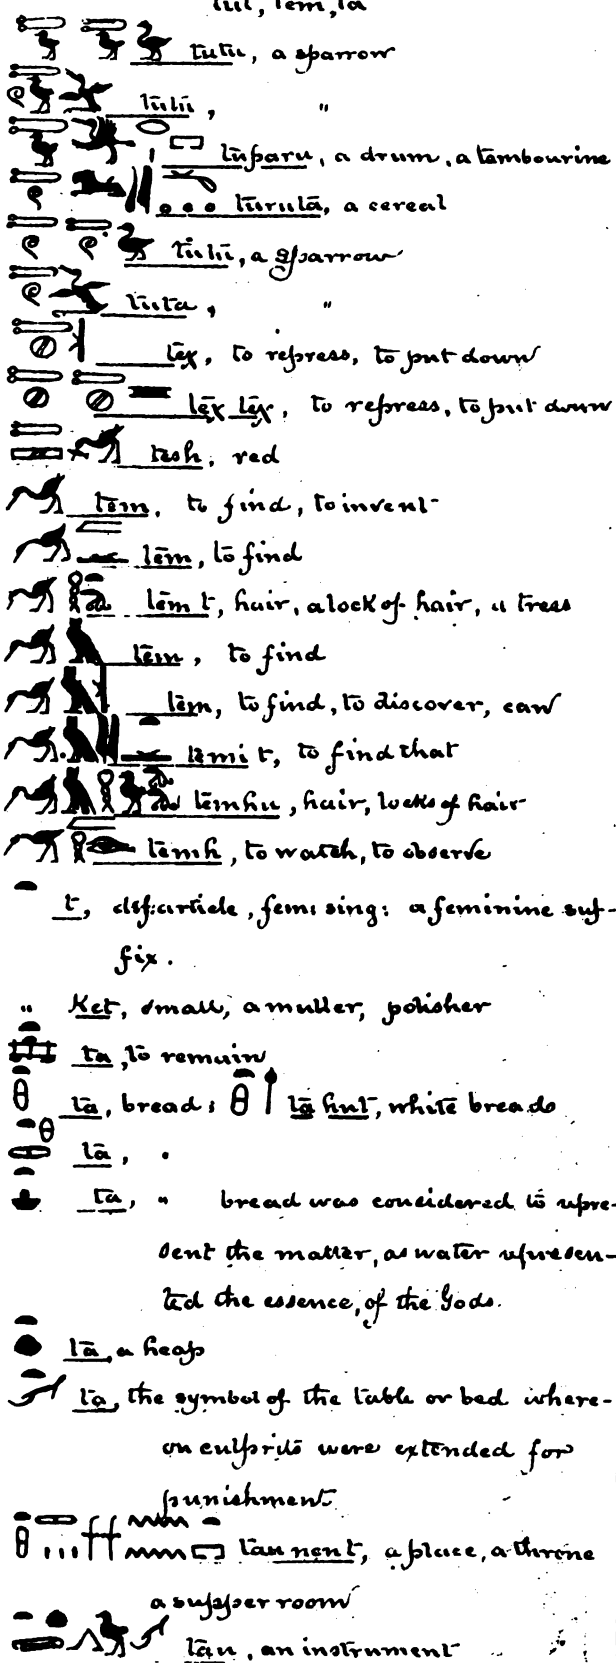 tut, tem, ta
tutu, a sparrow
tutu, "
tuparu, a drum, a tambourine
turuta, a cereal
tutu, a sparrow
tuta, "
tex, to repress, to put down
tex tex, to repress, to put down
tesh, red
tem, to find, to invent
tem, to find
tem t, hair, a lock of hair, a tress
tem, to find
tem, to find, to discover,
temi t, to find that
temhu, hair, locks of hair
temh, to watch, to observe
t, def: article, fem: sing: a feminine suf-
fix.
" Ket, small, a muller, polisher
ta, to remain
ta, bread; ta hut, white breads
ta, "
ta, " bread was considered to repre-
sent the matter, as water represen-
ted the essence, of the Gods.
ta, a heap
ta, the symbol of the table or bed where-
on culprits were extended for
punishment
tau nent, a place, a throne
a supper room
tau, an instrument